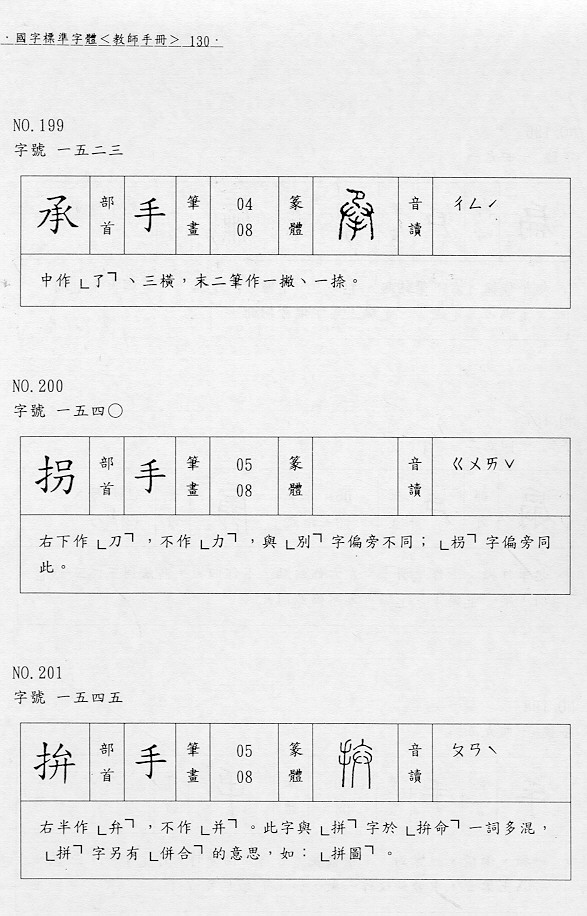 ·國字標準字體<教師手冊> 130·
NO.199
字號 一五二三
承 部首 手 筆畫 04 08 篆體 音讀 ㄔㄥˊ
中作「了」、三橫，末二筆作一撇、一捺。
NO.200
字號 一五四〇
拐 部首 手 筆畫 05 08 篆體 音讀 ㄍㄨㄞˇ
右下作「刀」，不作「力」，與「別」字偏旁不同；「枴」字偏旁同
此。
NO.201
字號 一五四五
拚 部首 手 筆畫 05 08 篆體 音讀 ㄆㄢˋ
右半作「弁」，不作「并」。此字與「拼」字於「拚命」一詞多混，
「拼」字另有「併合」的意思，如：「拼圖」。